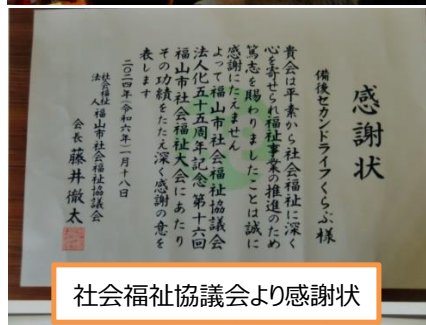 感謝状
備後セカンドライフくらぶ様
貴会は平素から社会福祉に深く
心を寄せられ福祉事業の推進のため
篤志を賜わりましたことは誠に
感謝にたえません
よって福山市社会福祉協議会
法人化五十五周年記念第十六回
福山市社会福祉大会にあたり
その功績をたたえ深く感謝の意を
表します
二〇二四年(令和六年)一月十八日
社会福祉法人福山市社会福祉協議会
会長藤井徹太
社会福祉協議会より感謝状